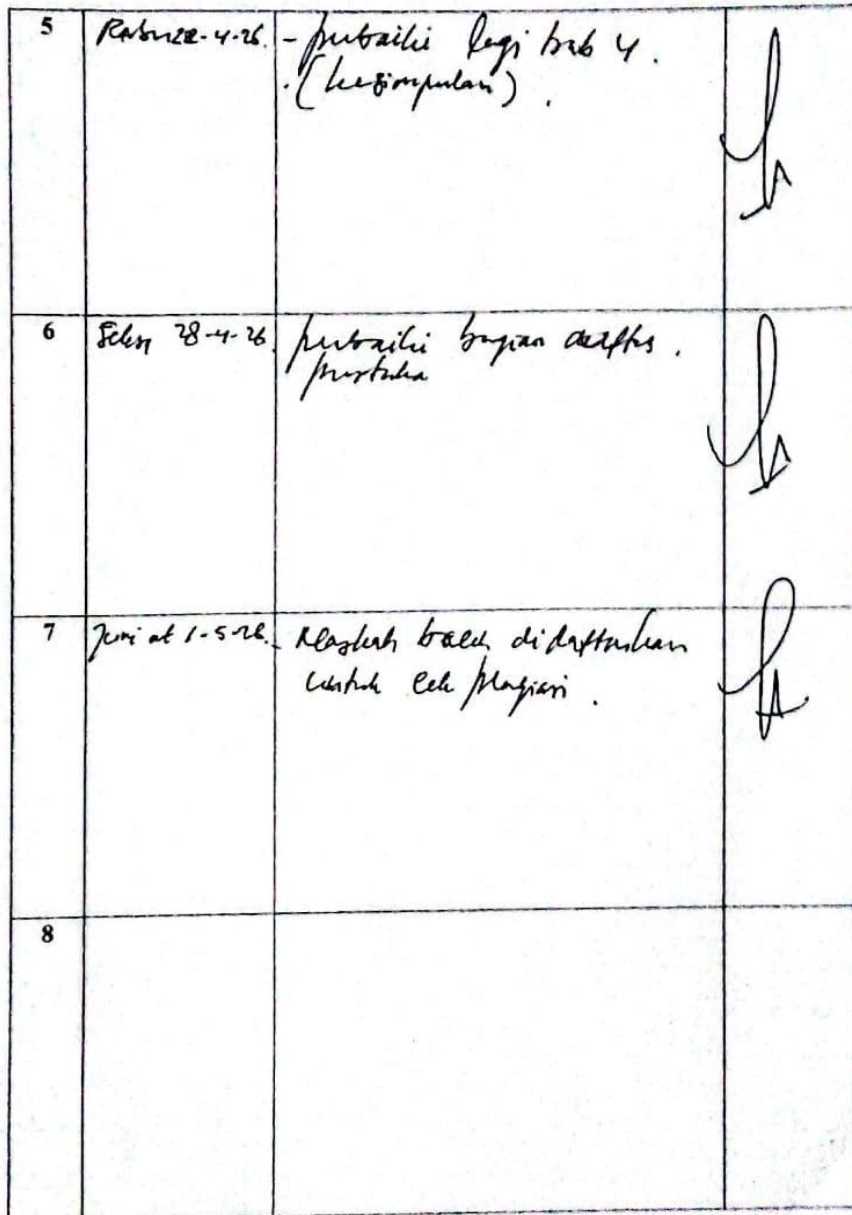 5
Rabu 22-4-26.
- perbaiki lagi bab 4.
(kesimpulan).
6
Selasa 28-4-26.
perbaiki bagian daftar
pustaka
7
Jum'at 1-5-26.
- Naskah boleh didaftarkan
untuk cek plagiasi.
8